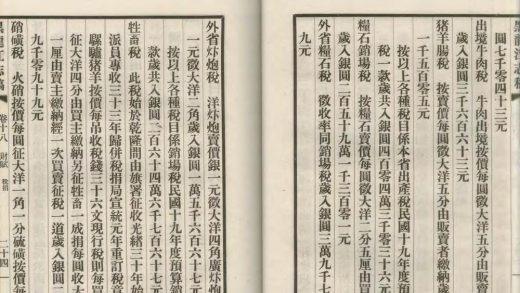 黑龍江志稿
圓七千零四十三元
出境牛肉稅　牛肉出境按價每圓徵大洋五分由販賣
銀圓三千六百六十三元
猪羊腸稅　按賣價每圓徵大洋五分由販賣者繳納歲
一千五百零五元
按以上各種稅目係徵本省出產稅民國十九年度預
稅一款歲共入銀圓四百零四萬三千三百零一元
糧石銷場稅　按糧石賣價每圓徵大洋二分五厘由買
圓二百五十九萬一千三百零一元
外省糧石稅　徵收率同銷場稅歲入銀圓三萬九千七
九元
外省炸炮稅　洋炸炮賣價銀一元徵大洋四角廣炸炮
一元徵大洋二角歲入銀圓一萬五千六百六十七元
按以上各種稅目係銷場稅民國十九年度預算銷
款歲共入銀圓二百六十四萬六千七百六十七元
牲畜稅　此稅始於乾隆間由旗署征收光緒三十年始
派員專收三十三年歸併稅捐局宣統元年重訂稅章
騾驢猪羊按價每吊收稅錢三十六文現行稅則每買
征大洋四分由買主繳納另征牲畜一成捐每圓收大
一厘由賣主繳納經一次買賣征稅一道歲入銀圓二
九千零九十九元
硝磺稅　火硝按價每圓征大洋一角一分磺按價每
黑龍江志稿　卷十八　財賦　稅捐　二十四